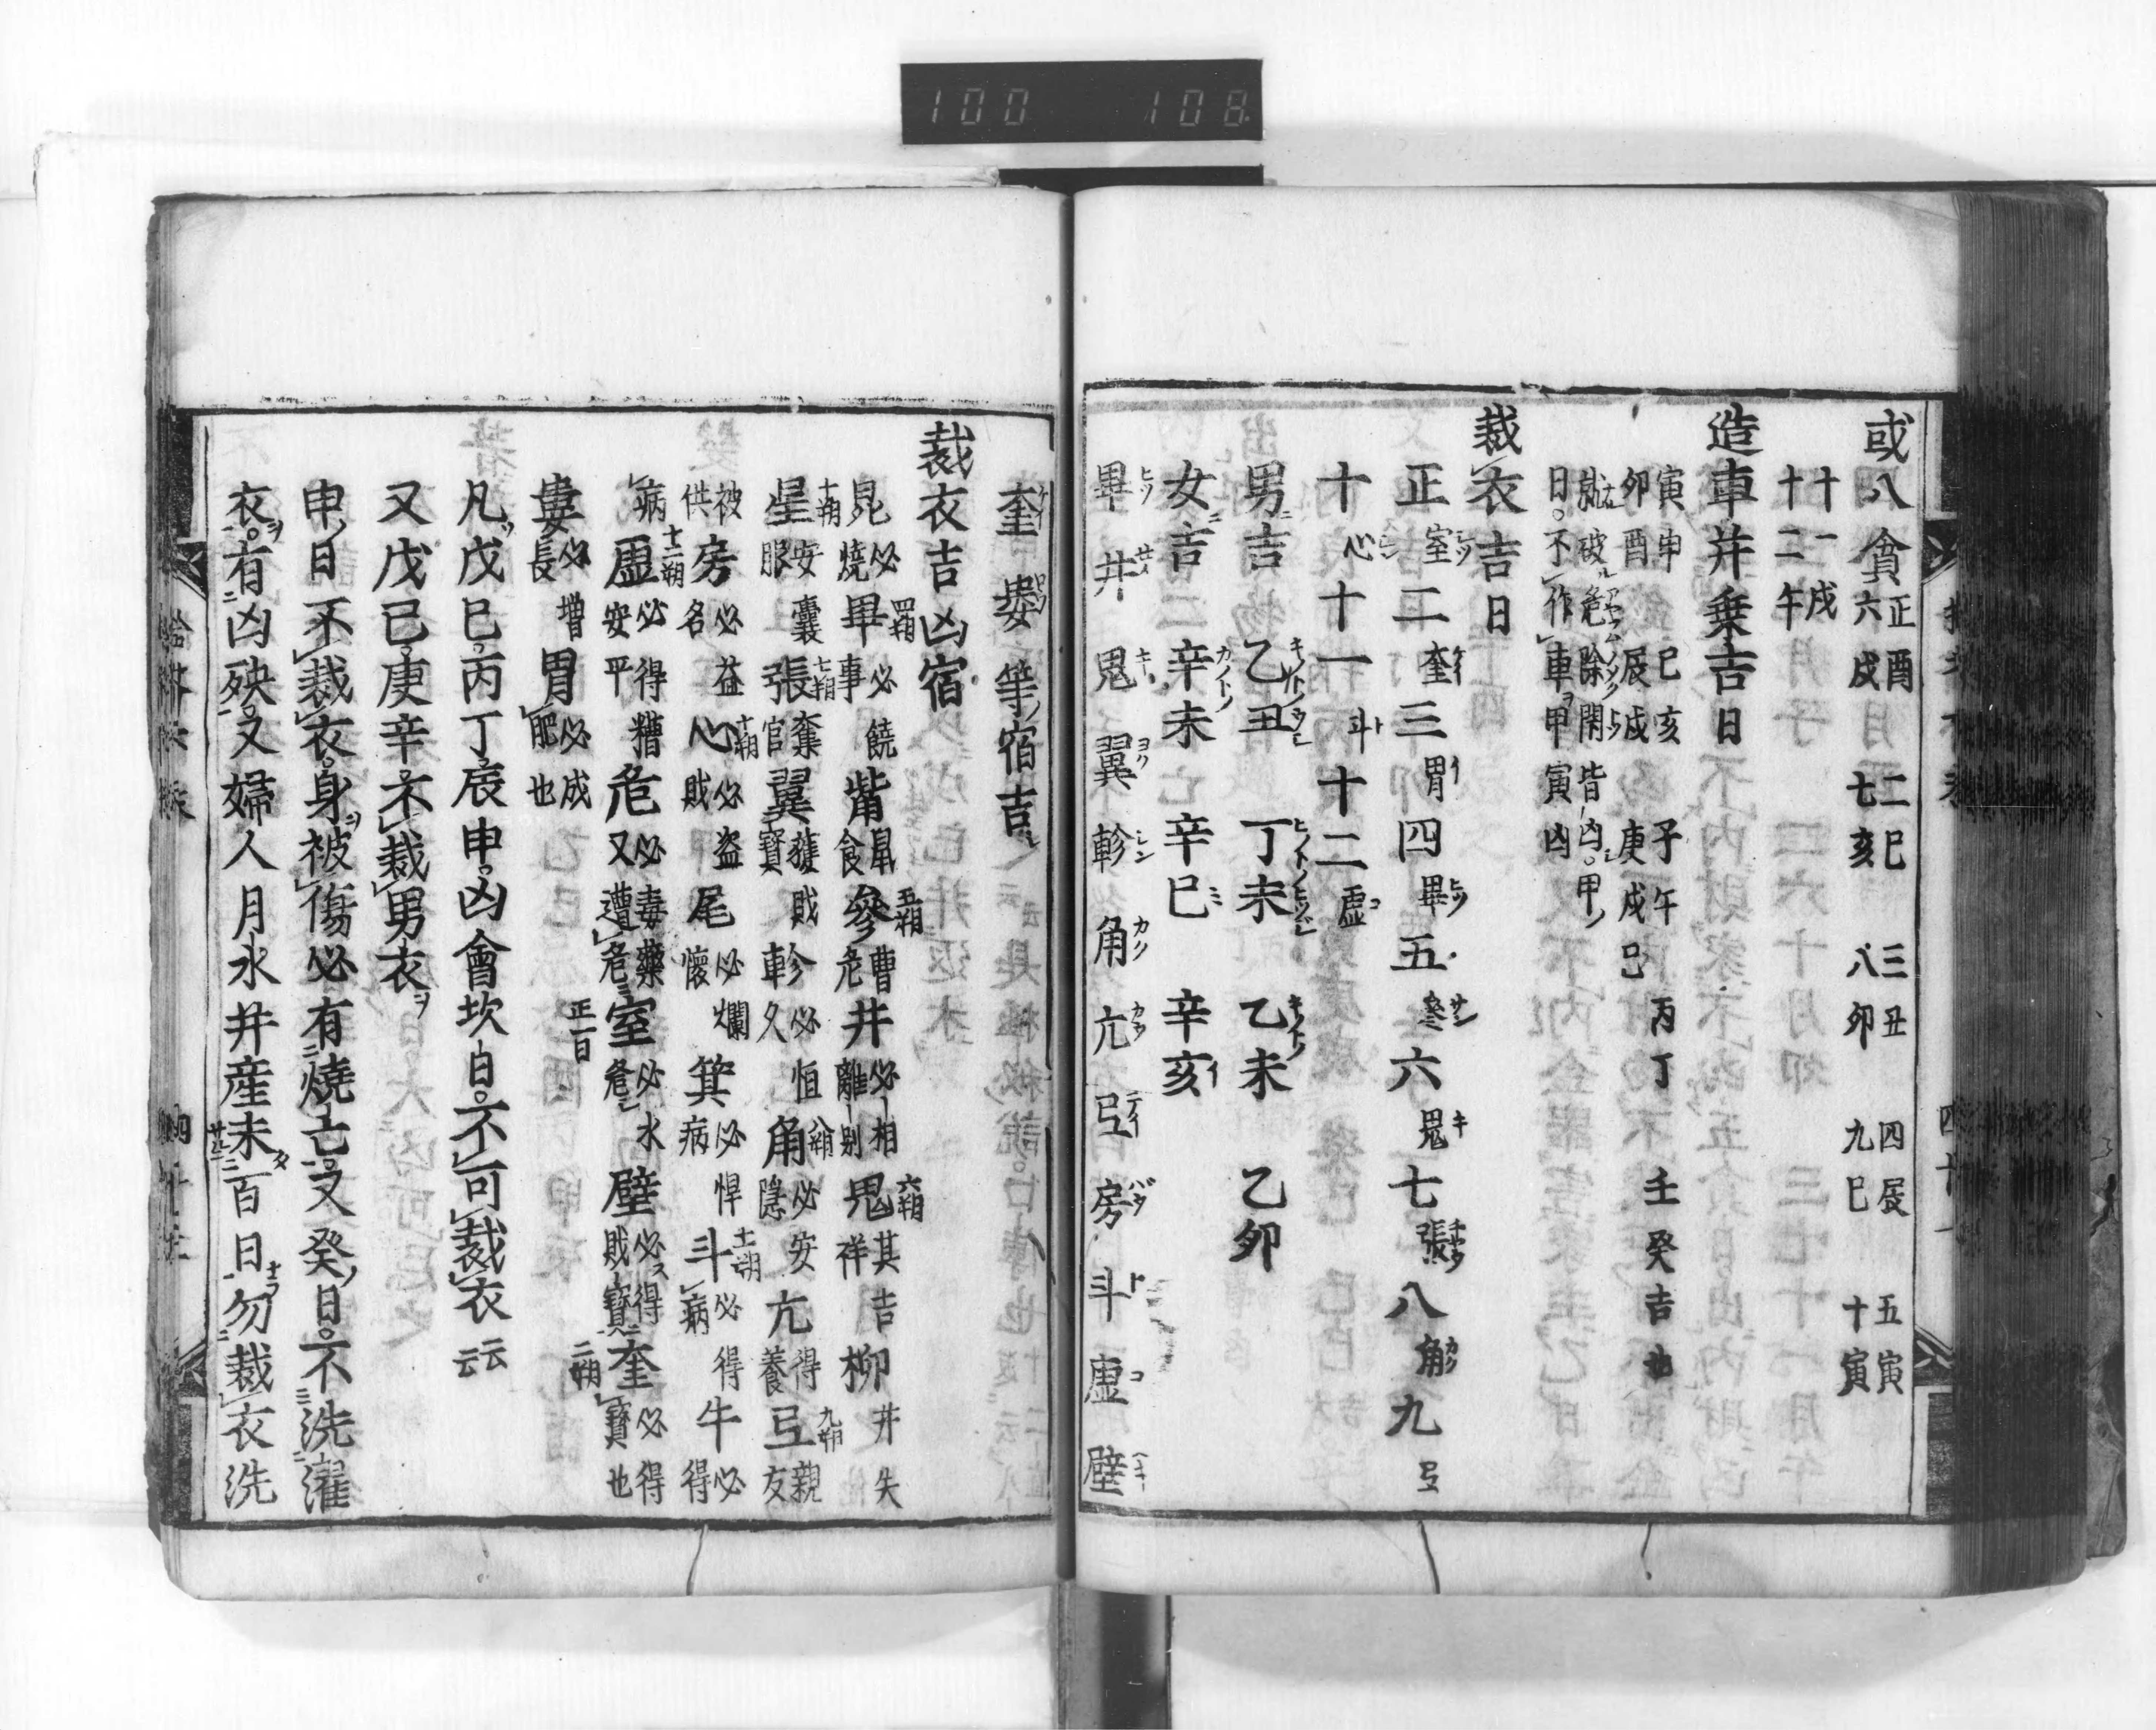 100 108
或八貪 正酉 二巳 三丑 四辰 五寅
六戌 七亥 八卯 九巳 十寅
十一戌
十二午
造車并乗吉日
寅申 巳亥 子午 丙丁 壬癸吉也
卯酉 辰戌 庚戌巳
就破危除閉皆凶甲
日不作車甲寅凶
裁衣吉日
正室二奎三胃四畢五参六鬼七張八角九氐
十心十一斗十二虚
男吉 乙丑 丁未 乙未 乙卯
女吉 辛未 辛巳 辛亥
畢 井 鬼 翼 軫 角 亢 氐 房 斗 虚 壁
奎 婁 等宿吉
裁衣吉凶宿
昴必燒 畢四朔必饒事 觜鼠食 參五朔曹危 井必相離別 鬼六朔其吉祥 柳井失
星十朔安嚢服 張七朔奪官 翼獲財寶 軫必恒久 角八朔必安隱 亢得養 氐九朔親友
被供 房必益名 心十朔必盗財 尾必爛懷 箕必悍病 斗十一朔必得病 牛必得
病 虚十二朔必得糟安平 危必毒藥又遭危 室正一日必水危 壁必得財寶 奎二朔必得寶也
婁必増長 胃必成肥也
凡戊巳丙丁辰申凶會坎日不可裁衣云云
又戊己庚辛不裁男衣
申日不裁衣身被傷必有燒亡又癸日不洗濯
衣有凶殃又婦人月水并産未百日勿裁衣洗